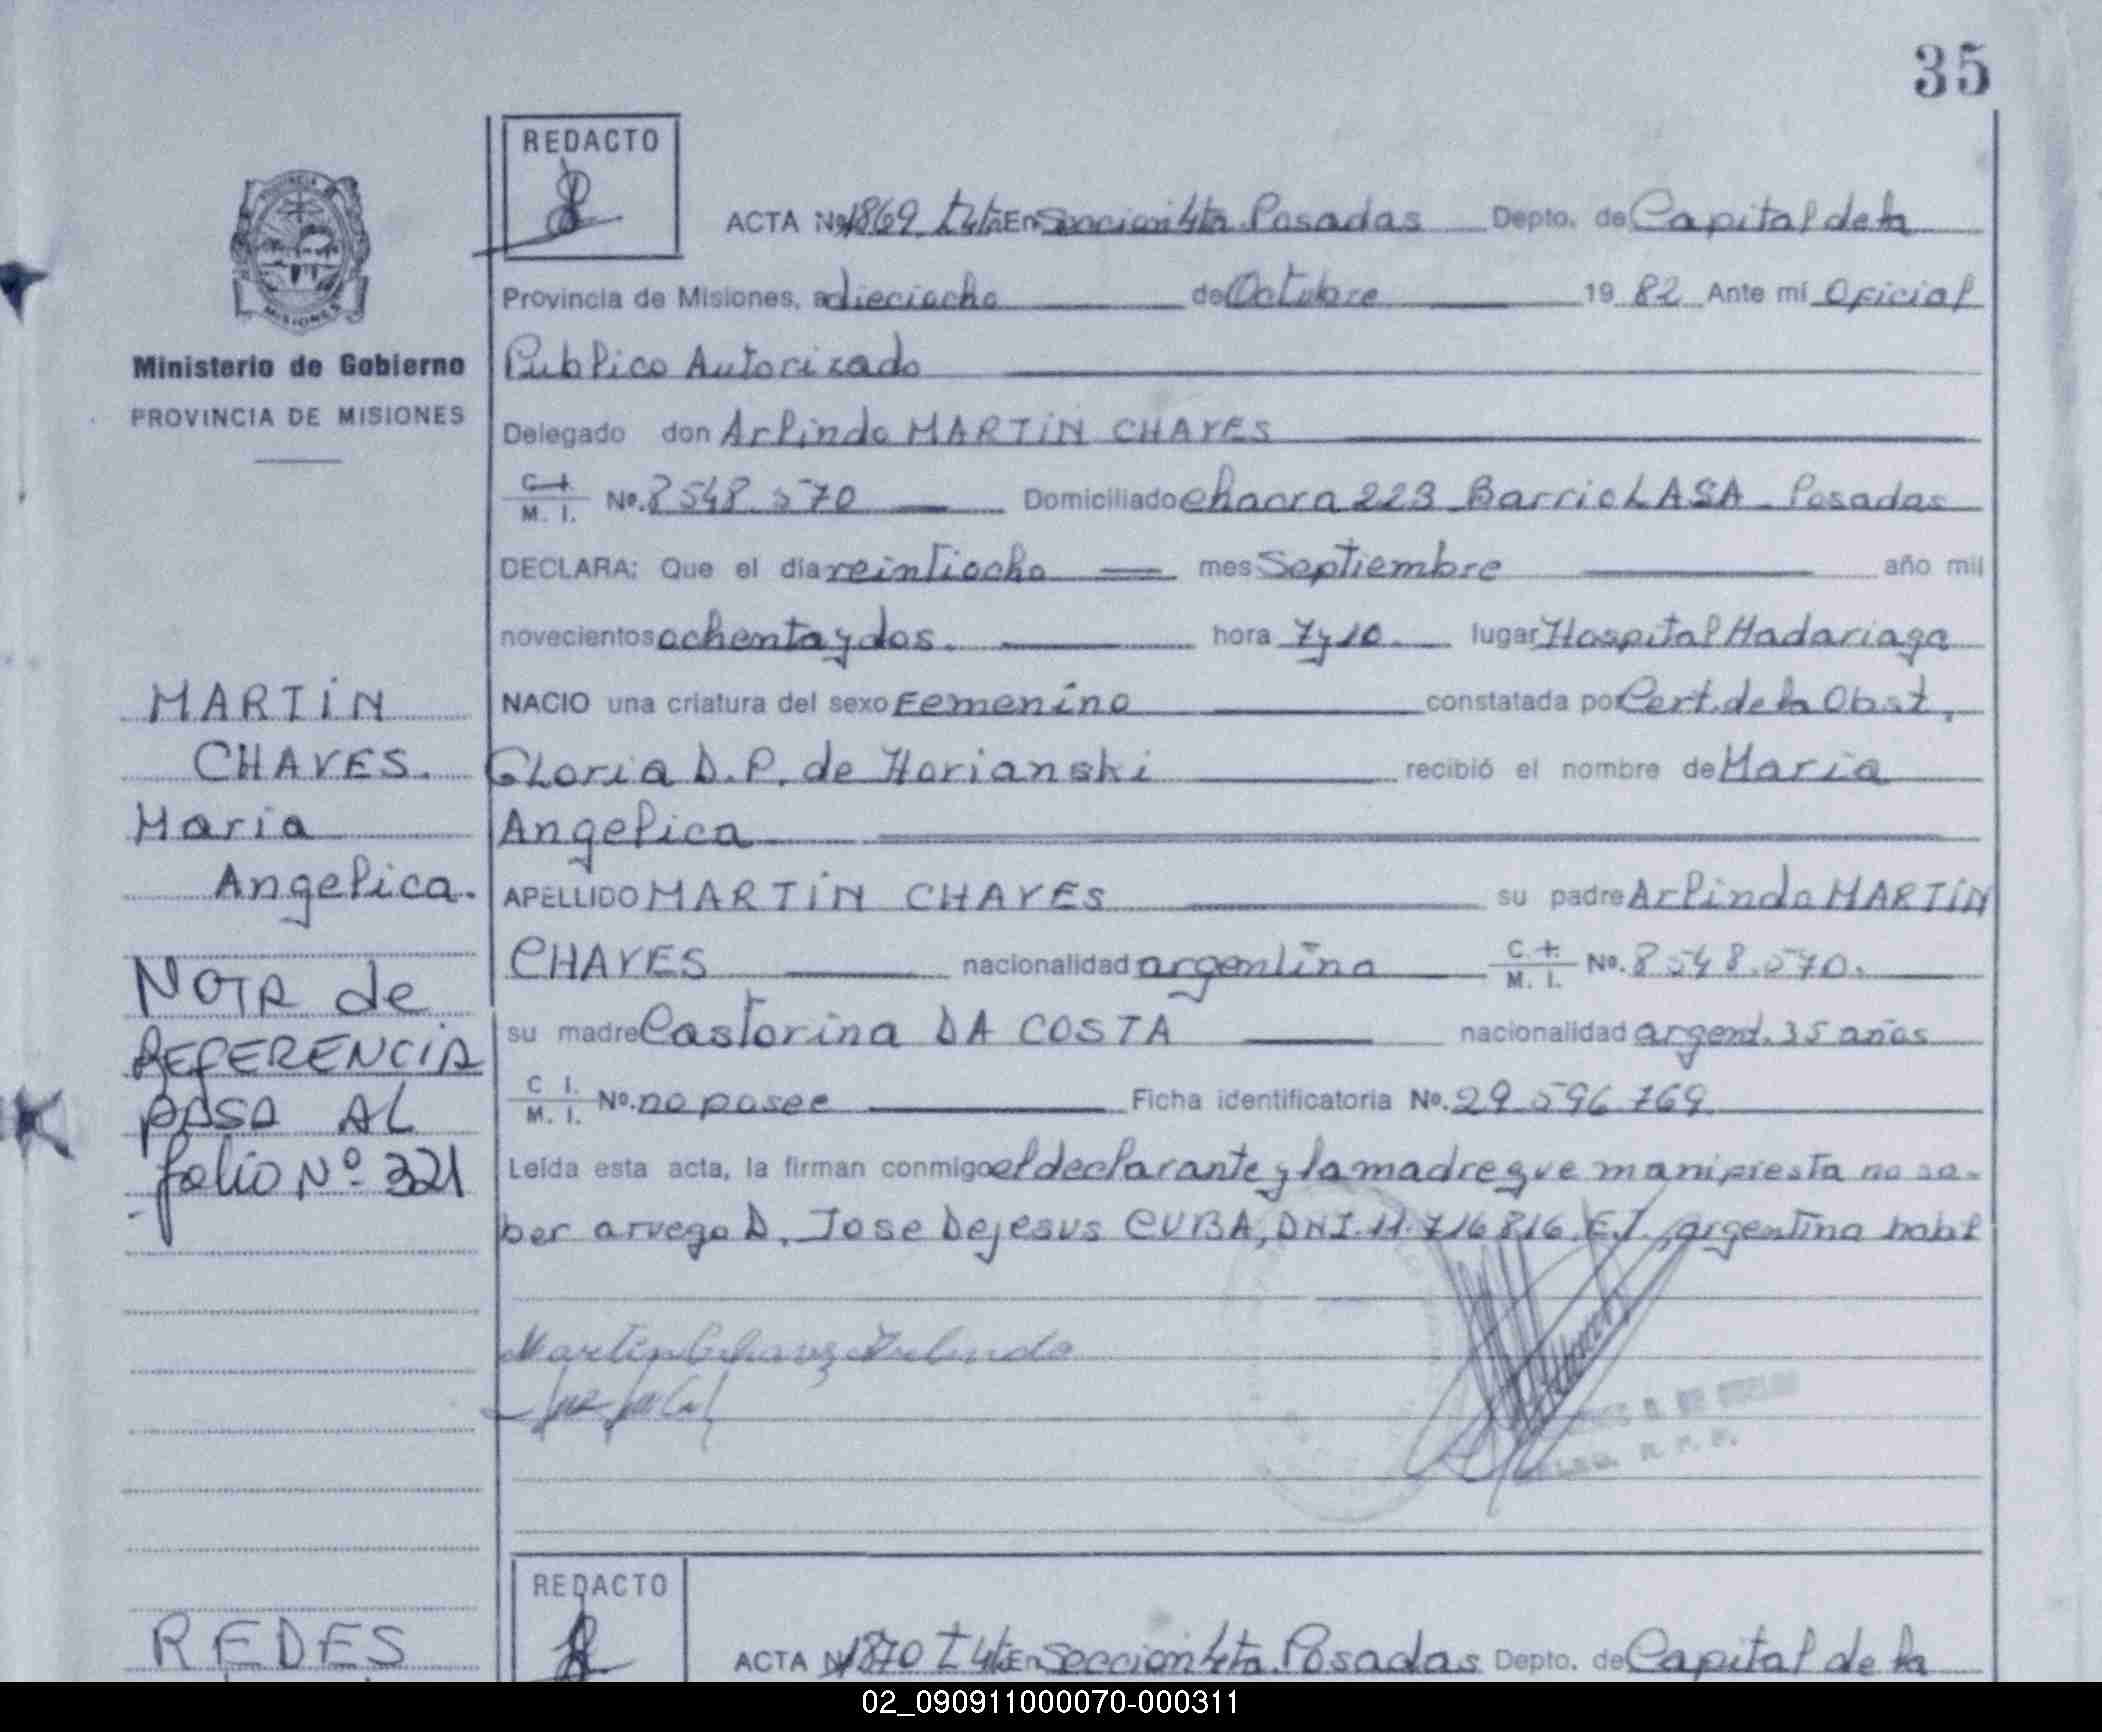 35
REDACTO
ACTA No. 1869 T 4ta En Seccion 4ta. Posadas Depto. de Capital de la
Provincia de Misiones, a dieciocho de Octubre 19 82 Ante mí Oficial
Publico Autorizado
Delegado don Arlindo MARTIN CHAVES
C.I. M. I. No. 8548.570 Domiciliado chacra 223 Barrio LASA - Posadas
DECLARA: Que el día veintiocho mes Septiembre año mil
novecientos ochenta y dos. hora 7 y 10. lugar Hospital Madariaga
NACIO una criatura del sexo Femenino constatada por Cert. de la Obst.
Gloria D. P. de Horianski recibió el nombre de Maria
Angelica
APELLIDO MARTIN CHAVES su padre Arlindo MARTIN
CHAVES nacionalidad argentino C.I. M. I. No. 8548.570.
su madre Castorina DA COSTA nacionalidad argent. 35 años
C I. M. I. No. no posee Ficha identificatoria No. 29.596.769
Leída esta acta, la firman conmigo el declarante y la madre que manifiesta no sa-
ber a ruego D. Jose Dejesus CUBA, DNI. 11.716.816 E.T. argentino habil
Martin Chavez Arlindo
Ministerio de Gobierno
PROVINCIA DE MISIONES
MARTIN
CHAVES.
Maria
Angelica.
NOTA de
REFERENCIA
PASA AL
folio Nº 321
REDES
REDACTO
ACTA N 1870 T 4ta En Seccion 4ta. Posadas Depto. de Capital de la
02_090911000070-000311